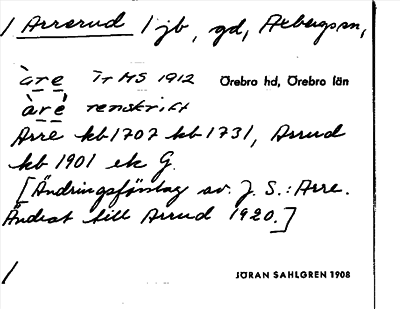 / Arrerud / jb, gd, Axbergssn,
àre Tr MS 1912 Örebro hd, Örebro län
àre renskrift
Arre kb 1707 kb 1731, Arrud
kb 1901 ek G.
[Ändringsförslag av J. S.: Arre.
Ändrat till Arrud 1920.]
/
JÖRAN SAHLGREN 1908